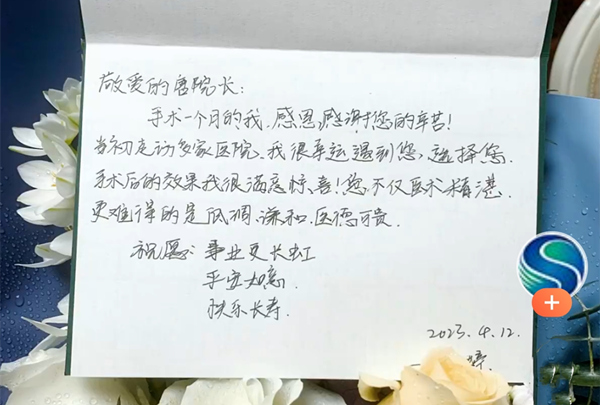 敬爱的唐院长：
手术一个月的我、感恩，感谢您的辛苦！
当初走访多家医院、我很幸运遇到您，选择您.
手术后的效果我很满意惊喜！您不仅医术精湛.
更难得的是低调、谦和、医德可贵.
祝愿：事业更长虹
平安如意.
快乐长寿.
2023.4.12.
婷.